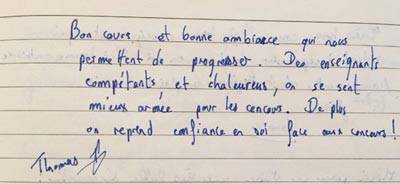 Bon cours et bonne ambiance qui nous
permettent de progresser. Des enseignants
compétents et chaleureux, on se sent
mieux armée pour les concours. De plus
on reprend confiance en soi face aux concours !
Thomas